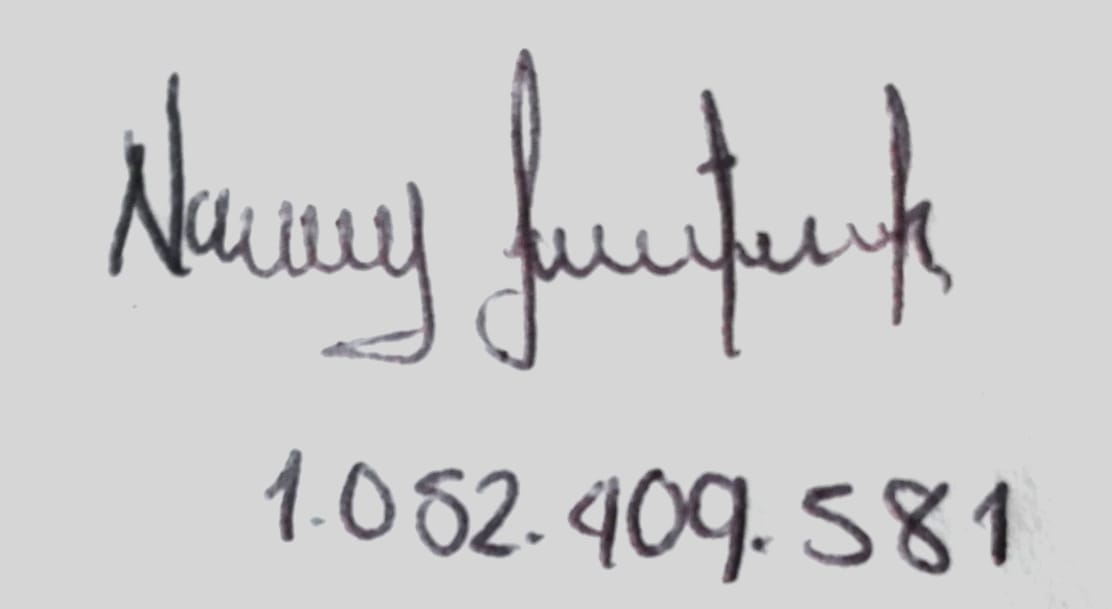 Nancy
1.052.409.581